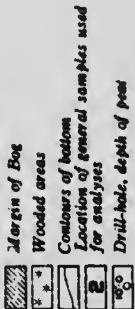 Margin of Bog
Wooded areas
Contours of bottom
2 Location of general samples used
for analyses
Drill-hole, depth of peat